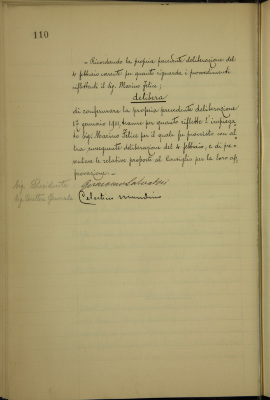 110
"Ricordando la propria precedente deliberazione del
4 febbraio corrente per quanto riguarda i provvedimenti
riflettenti il Sig. Marino Felice;
delibera
di confermare la propria precedente deliberazione
17 gennaio tranne per quanto riflette l'impiega-
to Sig. Marino Felice per il quale fu provvisto con al-
tra susseguente deliberazione del 4 febbraio, e di pre-
sentare le relative proposte al Consiglio per la loro ap-
provazione."
Sig. Presidente
Sig. Direttore Generale
Celestino